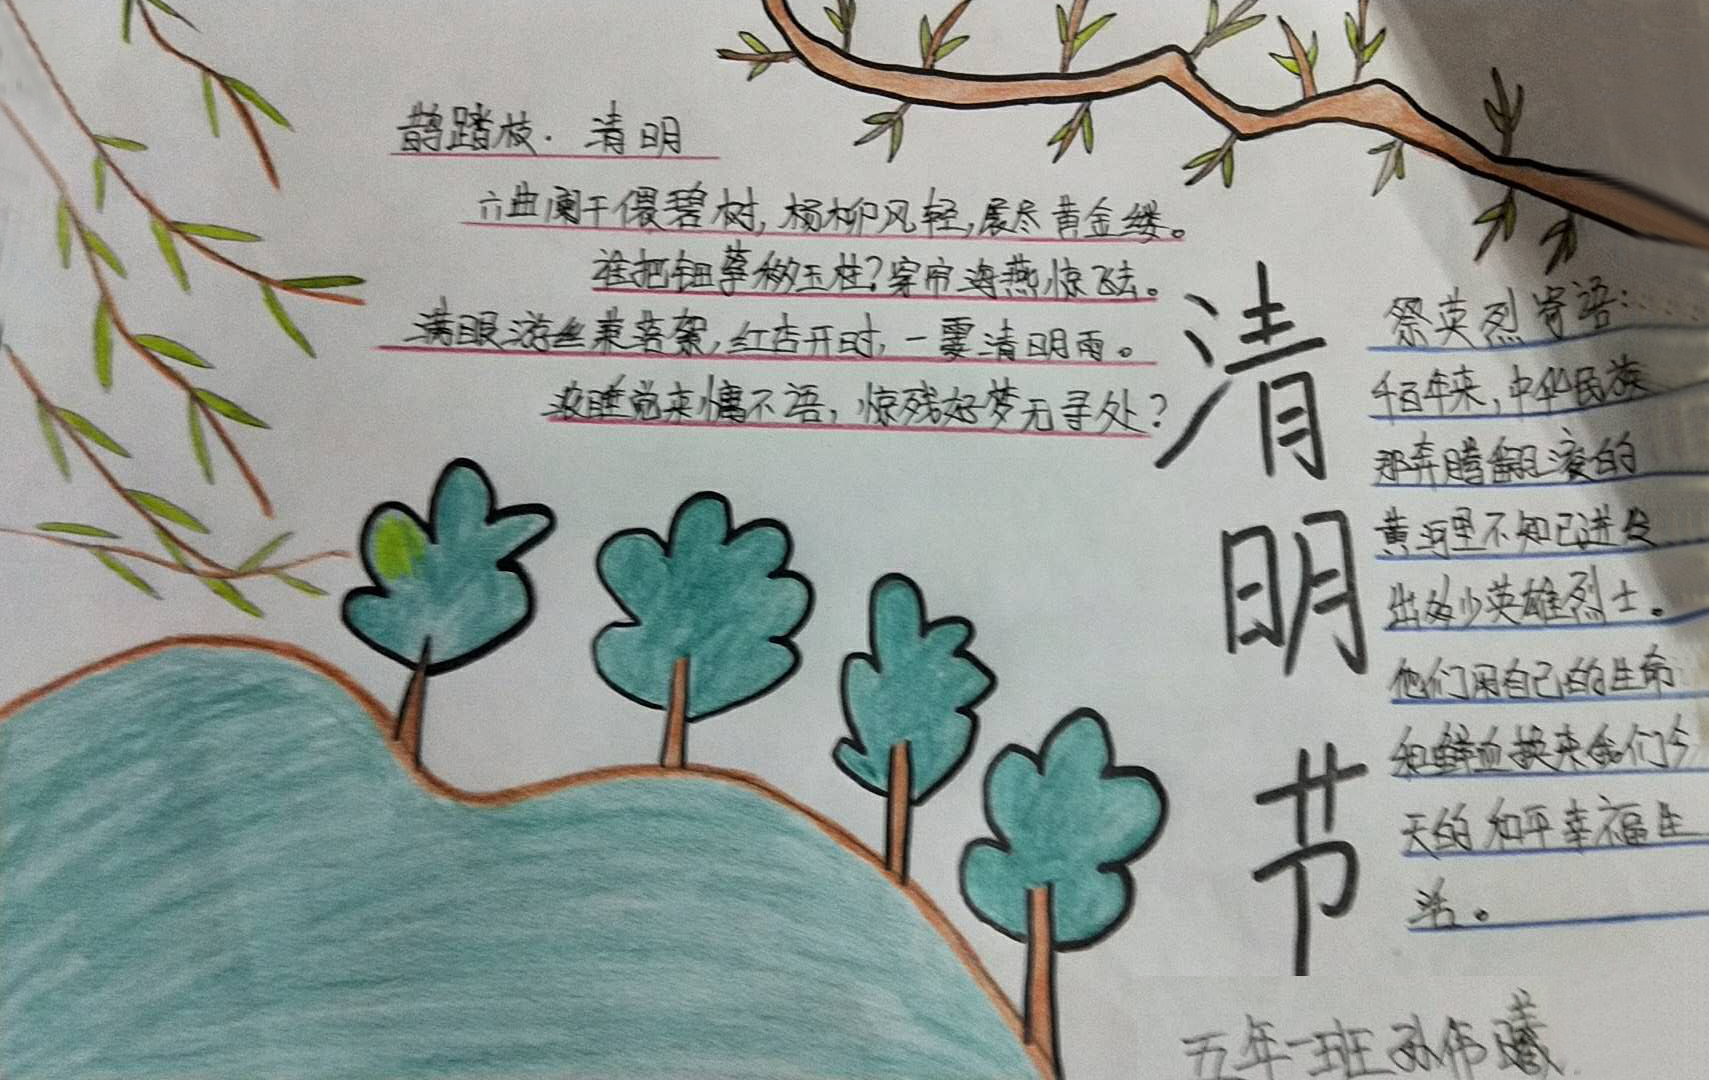 鹊踏枝·清明
六曲阑干偎碧树,杨柳风轻,展尽黄金缕。
谁把钿筝移玉柱?穿帘海燕惊飞去。
满眼游丝兼落絮,红杏开时,一霎清明雨。
浓睡觉来慵不语,惊残好梦无寻处?
清明节
祭英烈寄语:
千百年来,中华民族
那奔腾翻滚的
黄河里不知已迸发
出多少英雄烈士。
他们用自己的生命
和鲜血换来我们今
天的和平幸福生
活。
五年一班孙伟曦